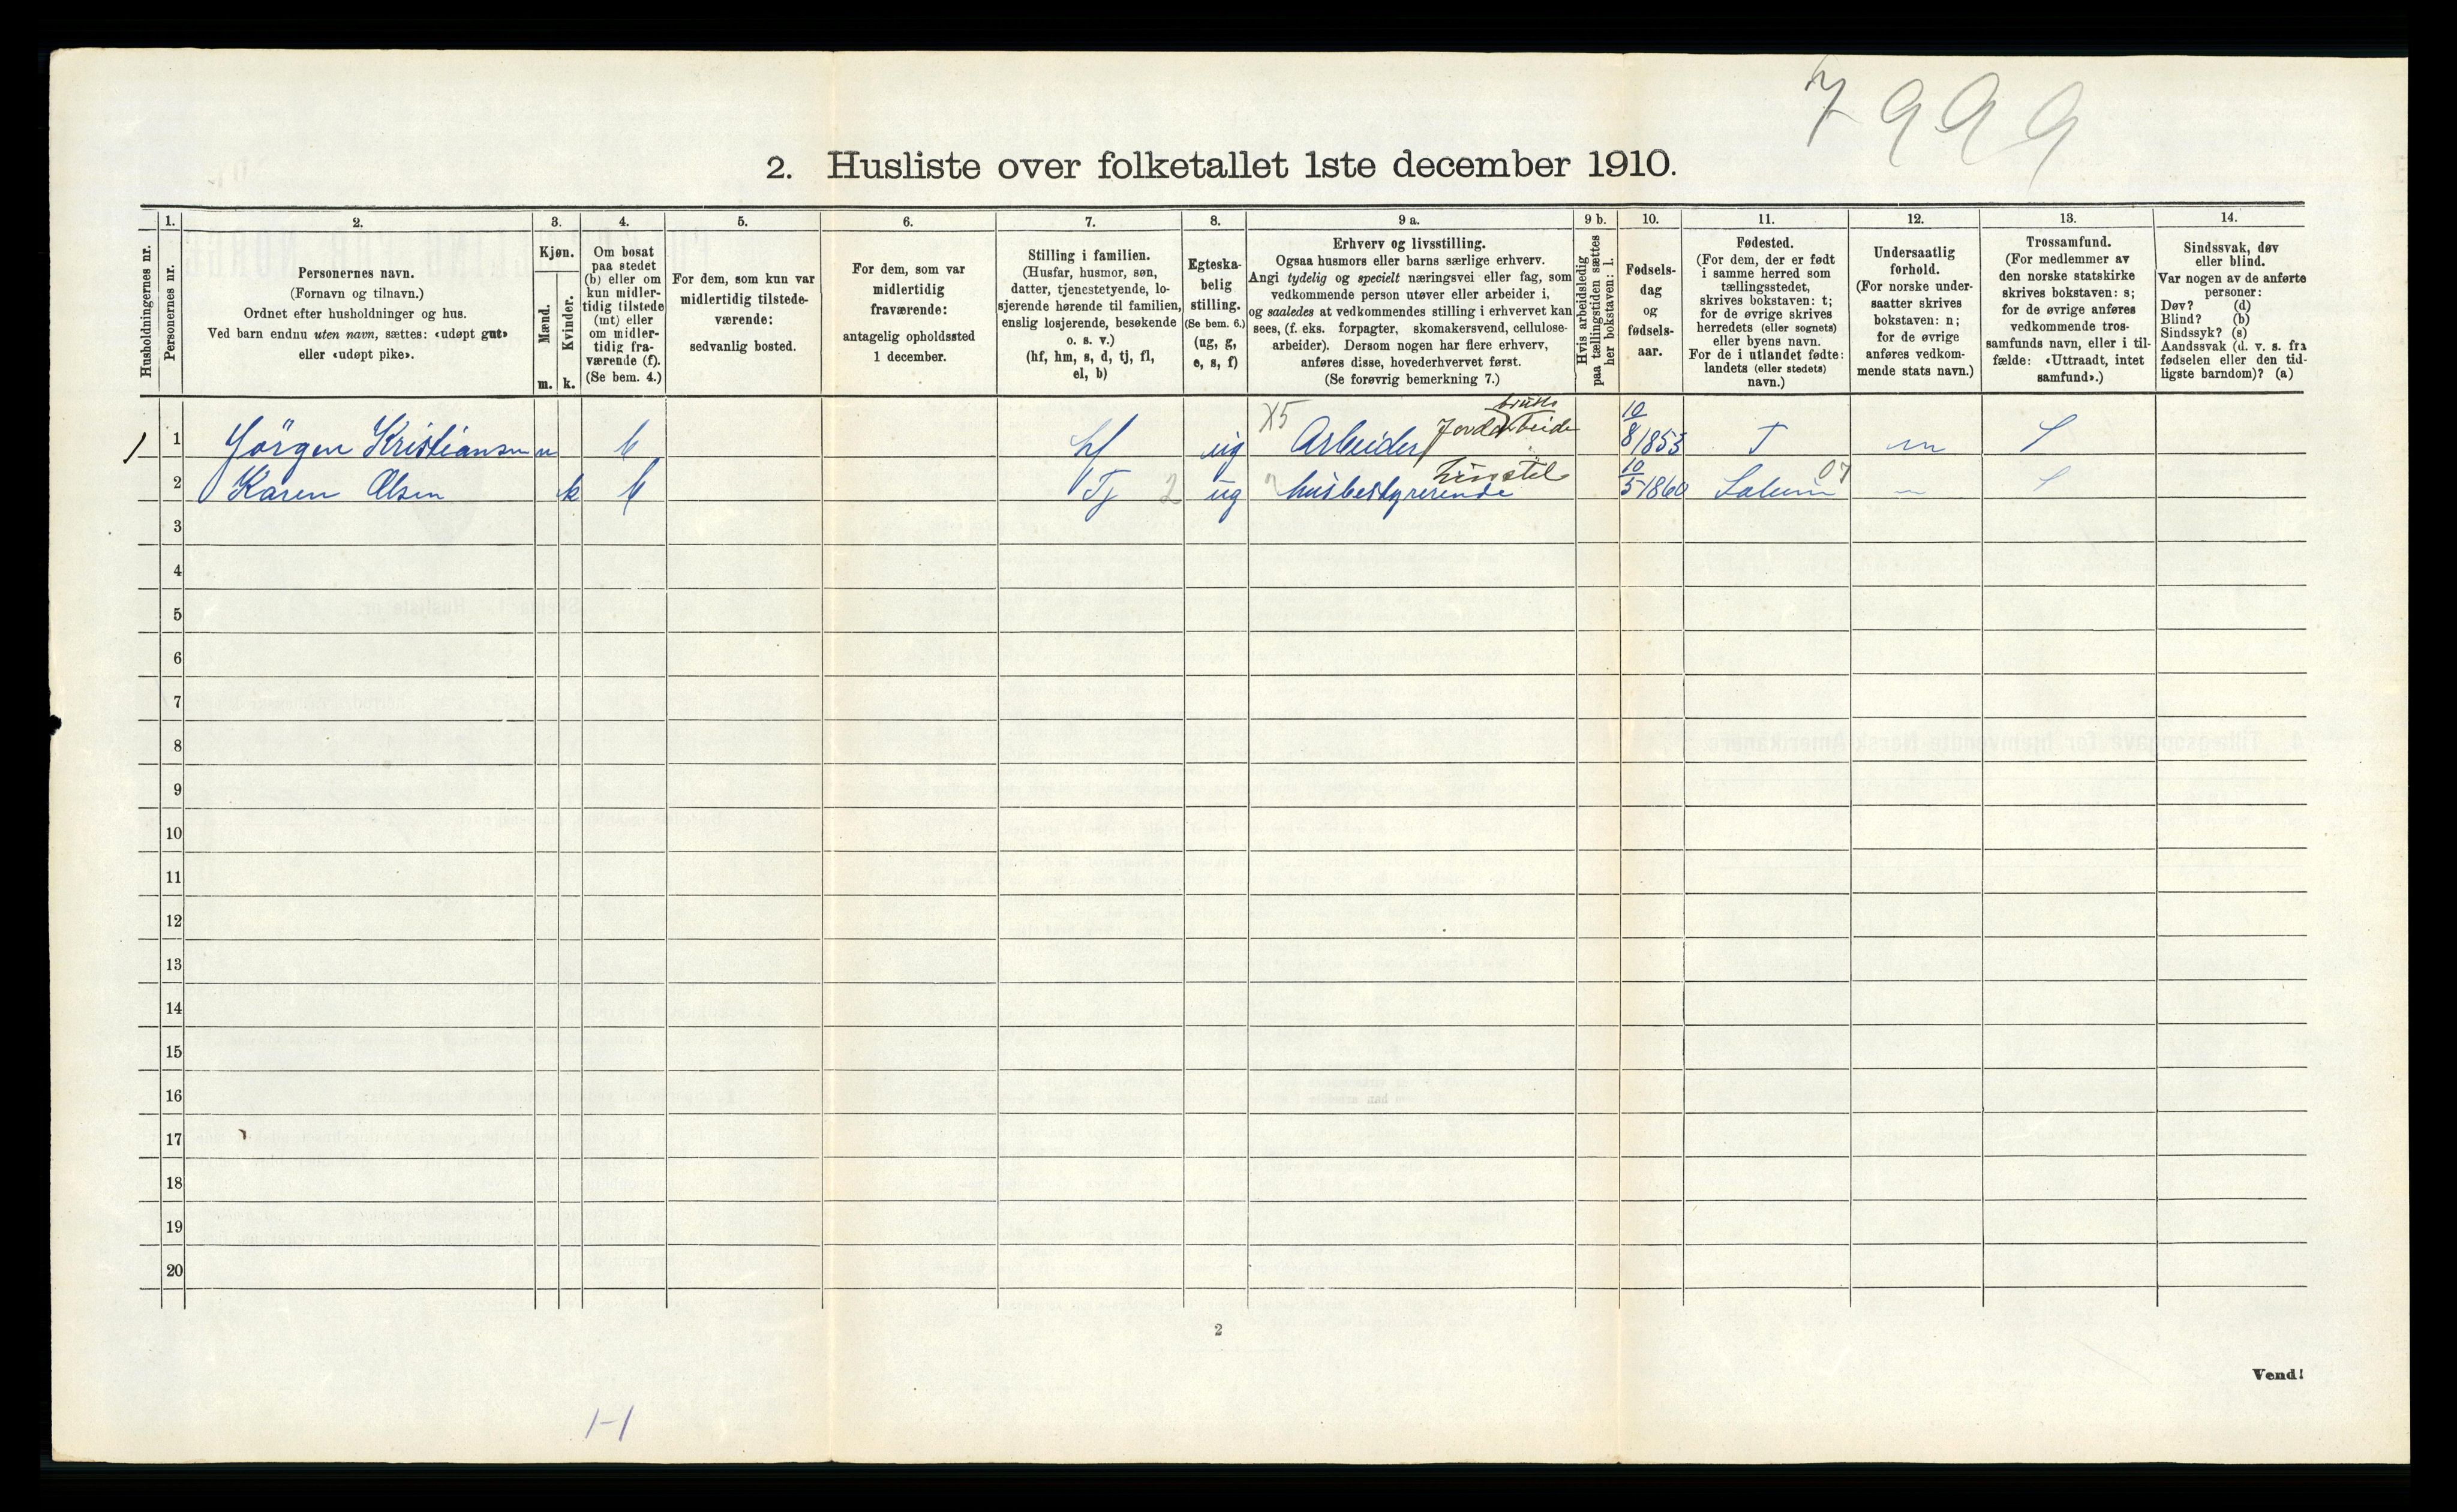 7999
2. Husliste over folketallet 1ste december 1910.
Husholdningernes nr.
1.
Personernes nr.
2.
Personernes navn.
(Fornavn og tilnavn.)
Ordnet efter husholdninger og hus.
Ved barn endnu uten navn, sættes: «udøpt gut»
eller «udøpt pike».
3.
Kjøn.
Mænd.
Kvinder.
m. k.
4.
Om bosat
paa stedet
(b) eller om
kun midler-
tidig tilstede
(mt) eller
om midler-
tidig fra-
værende (f).
(Se bem. 4.)
5.
For dem, som kun var
midlertidig tilstede-
værende:
sedvanlig bosted.
6.
For dem, som var
midlertidig
fraværende:
antagelig opholdssted
1 december.
7.
Stilling i familien.
(Husfar, husmor, søn,
datter, tjenestetyende, lo-
sjerende hørende til familien,
enslig losjerende, besøkende
o. s. v.)
(hf, hm, s, d, tj, fl,
el, b)
8.
Egteska-
belig
stilling.
(Se bem. 6.)
(ug, g,
e, s, f)
9 a.
Erhverv og livsstilling.
Ogsaa husmors eller barns særlige erhverv.
Angi tydelig og specielt næringsvei eller fag, som
vedkommende person utøver eller arbeider i,
og saaledes at vedkommendes stilling i erhvervet kan
sees, (f. eks. forpagter, skomakersvend, cellulose-
arbeider). Dersom nogen har flere erhverv,
anføres disse, hovederhvervet først.
(Se forøvrig bemerkning 7.)
9 b.
Hvis arbeidsledig
paa tællingstiden sættes
her bokstaven: l.
10.
Fødsels-
dag
og
fødsels-
aar.
11.
Fødested.
(For dem, der er født
i samme herred som
tællingsstedet,
skrives bokstaven: t;
for de øvrige skrives
herredets (eller sognets)
eller byens navn.
For de i utlandet fødte:
landets (eller stedets)
navn.)
12.
Undersaatlig
forhold.
(For norske under-
saatter skrives
bokstaven: n;
for de øvrige
anføres vedkom-
mende stats navn.)
13.
Trossamfund.
(For medlemmer av
den norske statskirke
skrives bokstaven: s;
for de øvrige anføres
vedkommende tros-
samfunds navn, eller i til-
fælde: «Uttraadt, intet
samfund».)
14.
Sindssvak, døv
eller blind.
Var nogen av de anførte
personer:
Døv? (d)
Blind? (b)
Sindssyk? (s)
Aandssvak (d. v. s. fra
fødselen eller den tid-
ligste barndom)? (a)
1 1 Jörgen Kristiansen m b hf ug X5 Arbeider Jordarbeide 10/8 1853 T n S
2 Karen Olsen k b Tj 2 ug husbestyrerende 10/5 1860 Solum 07 n S
3
4
5
6
7
8
9
10
11
12
13
14
15
16
17
18
19
20
2
Vend!
1-1